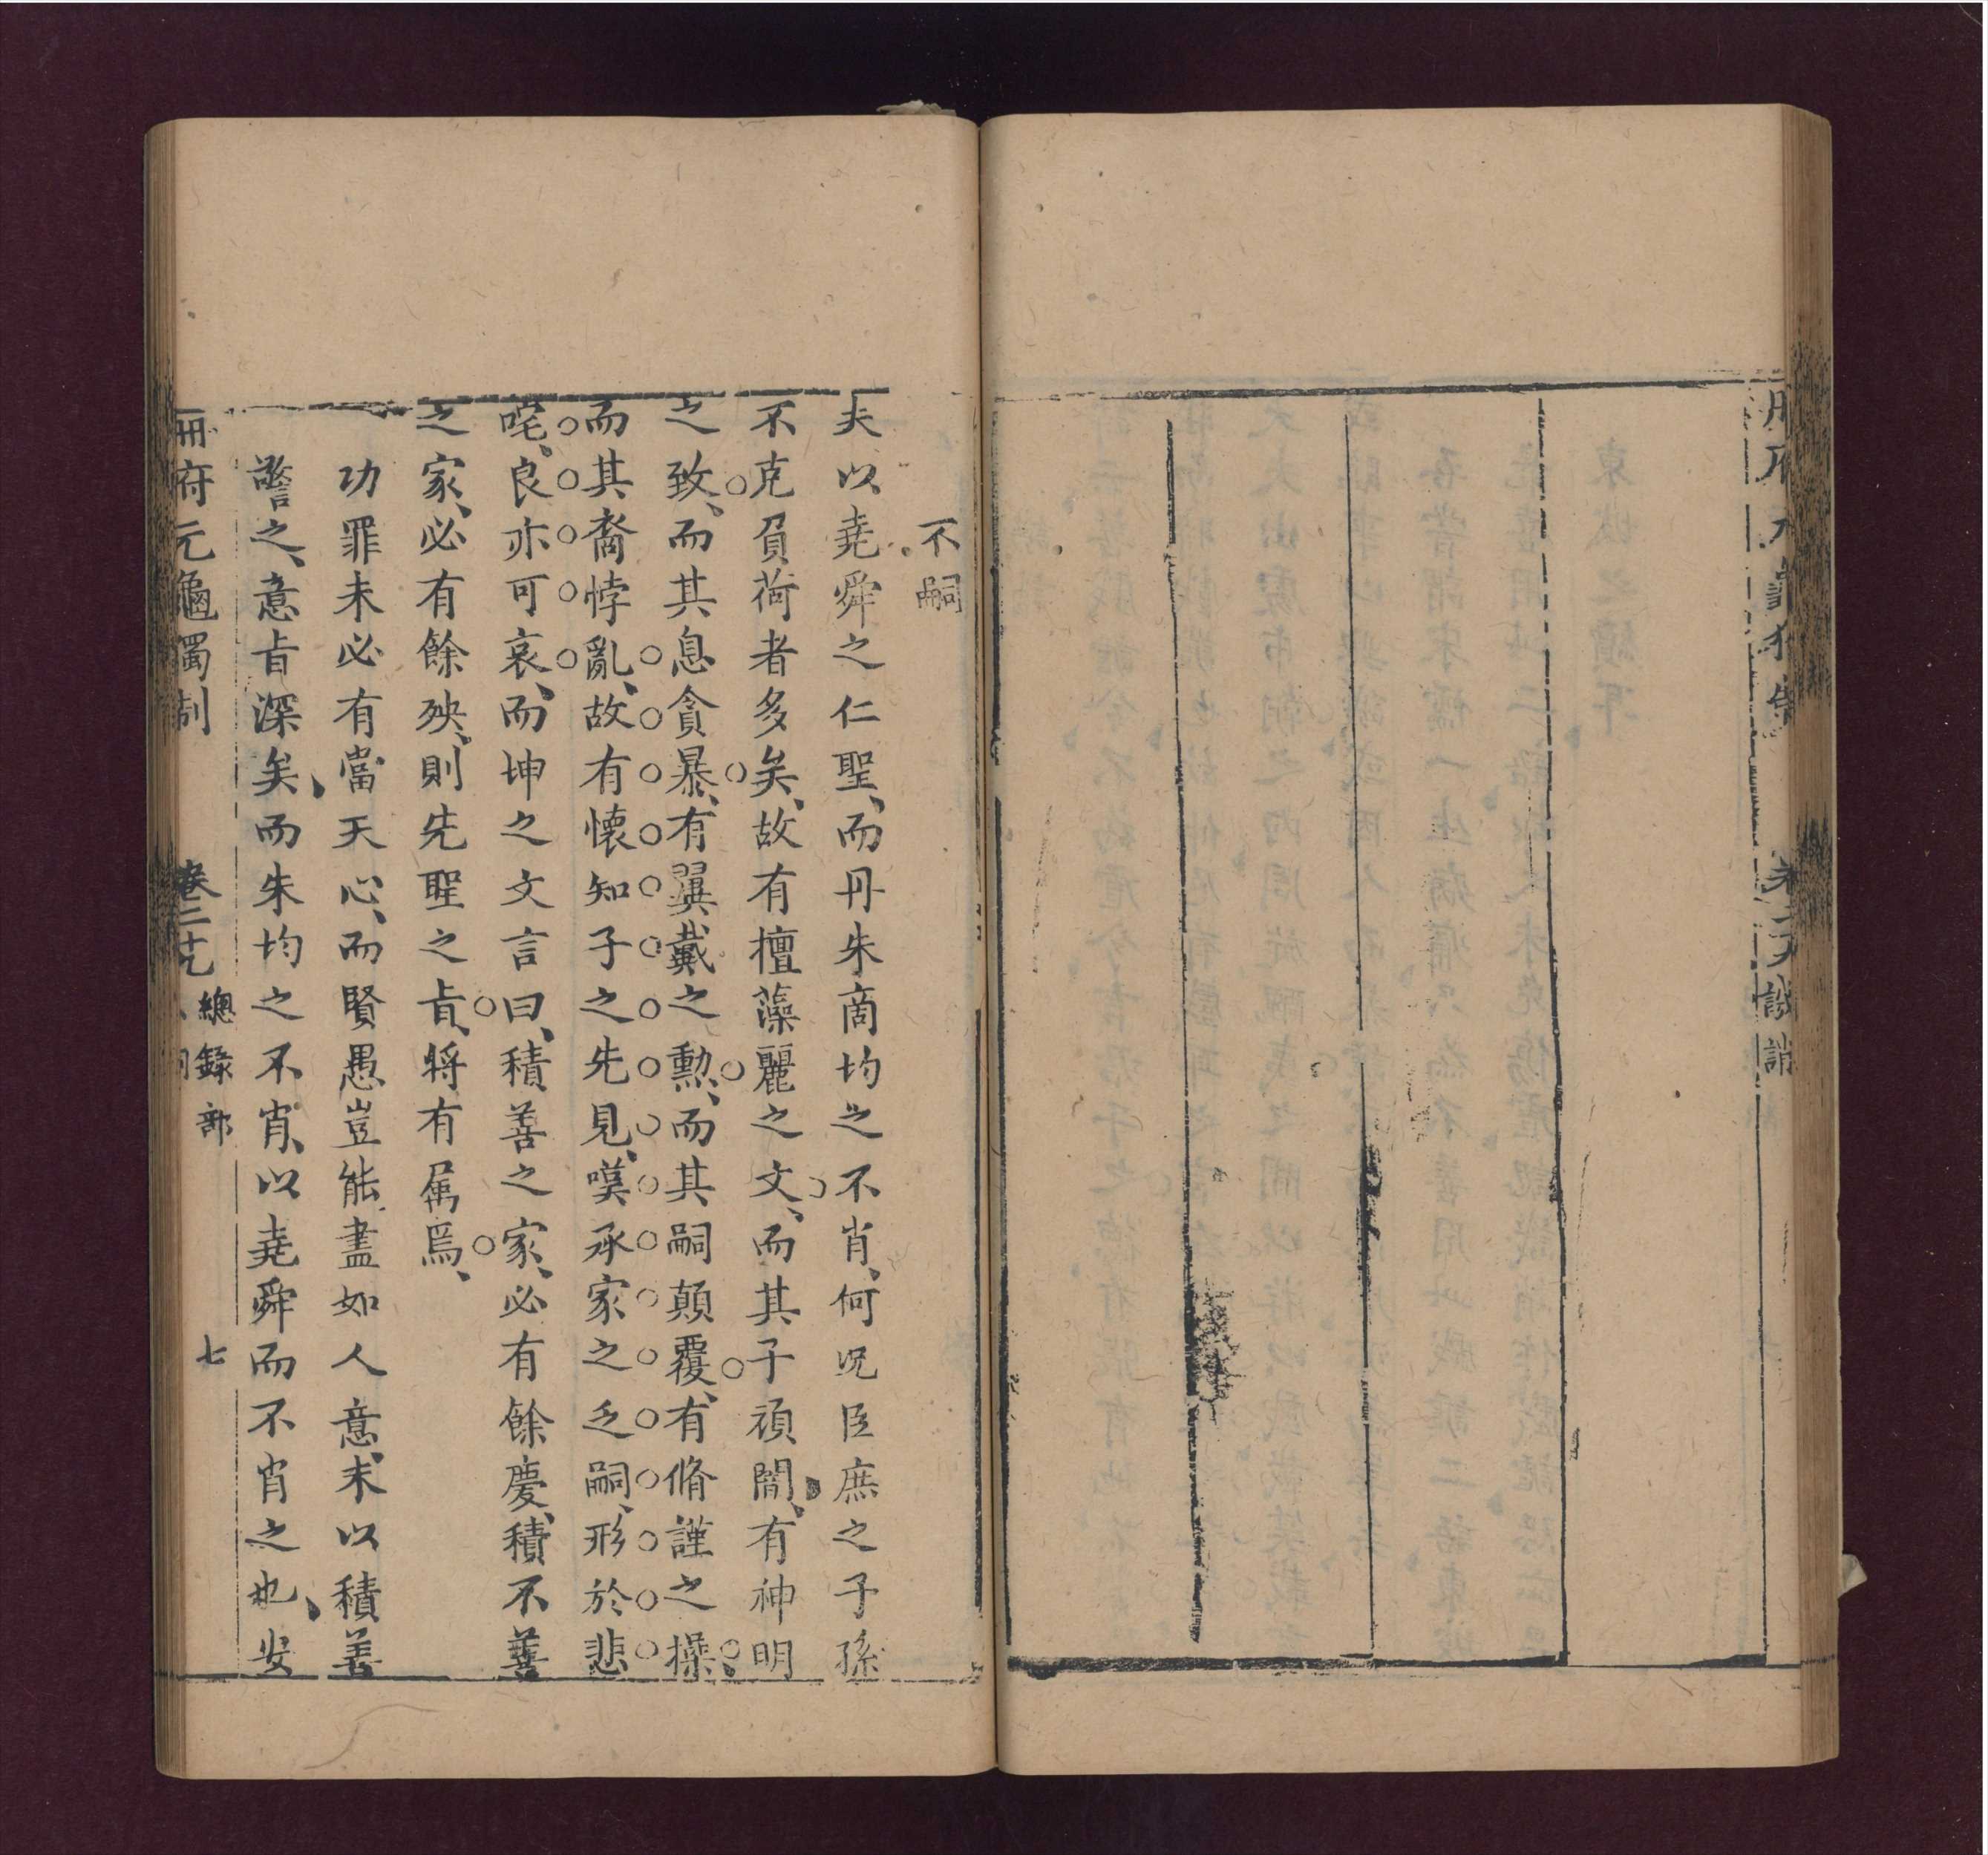 不嗣
夫以堯舜之仁聖、而丹朱商均之不肖、何况臣庶之子孫
不克負荷者多矣、故有擅藻麗之文、而其子頑闇、有神明
之致、而其息貪暴、有翼戴之勲、而其嗣顛覆、有脩謹之操、
而其裔悖亂、故有懐知子之先見、嘆承家之乏嗣、形於悲
咤、良亦可哀、而坤之文言曰、積善之家、必有餘慶、積不善
之家、必有餘殃、則先聖之㫖、将有属焉、
功罪未必有當天心、而賢愚豈能盡如人意、末以積善
警之、意㫖深矣、而朱均之不肖、以堯舜而不肖之也、安
冊府元龜獨制
卷二十九
總録部
七